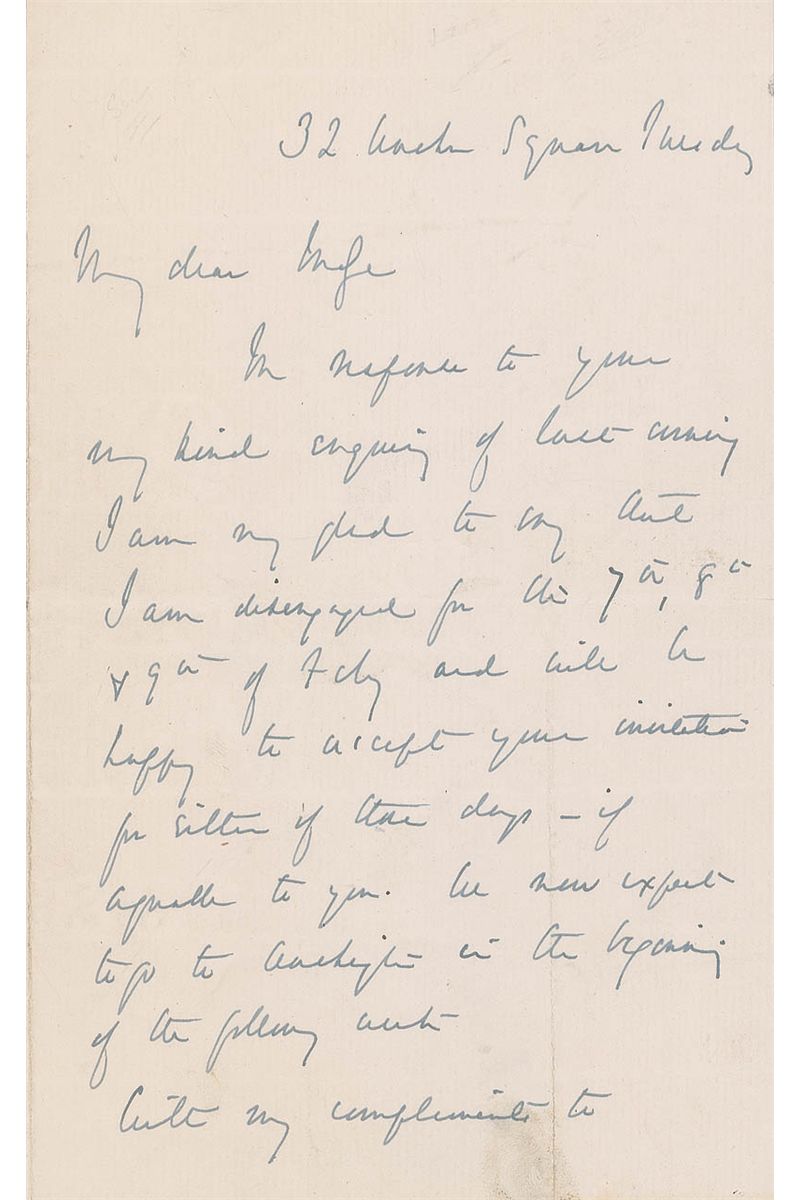 32 Square Tuesday
My dear
In response to your
very kind enquiry of last evening
I am very glad to say that
I am disengaged for the 7th, 8th
& 9th of Feby and will be
happy to accept your invitation
for either of those days - if
agreeable to you. We now expect
to go to Washington in the beginning
of the following week
With my compliments to